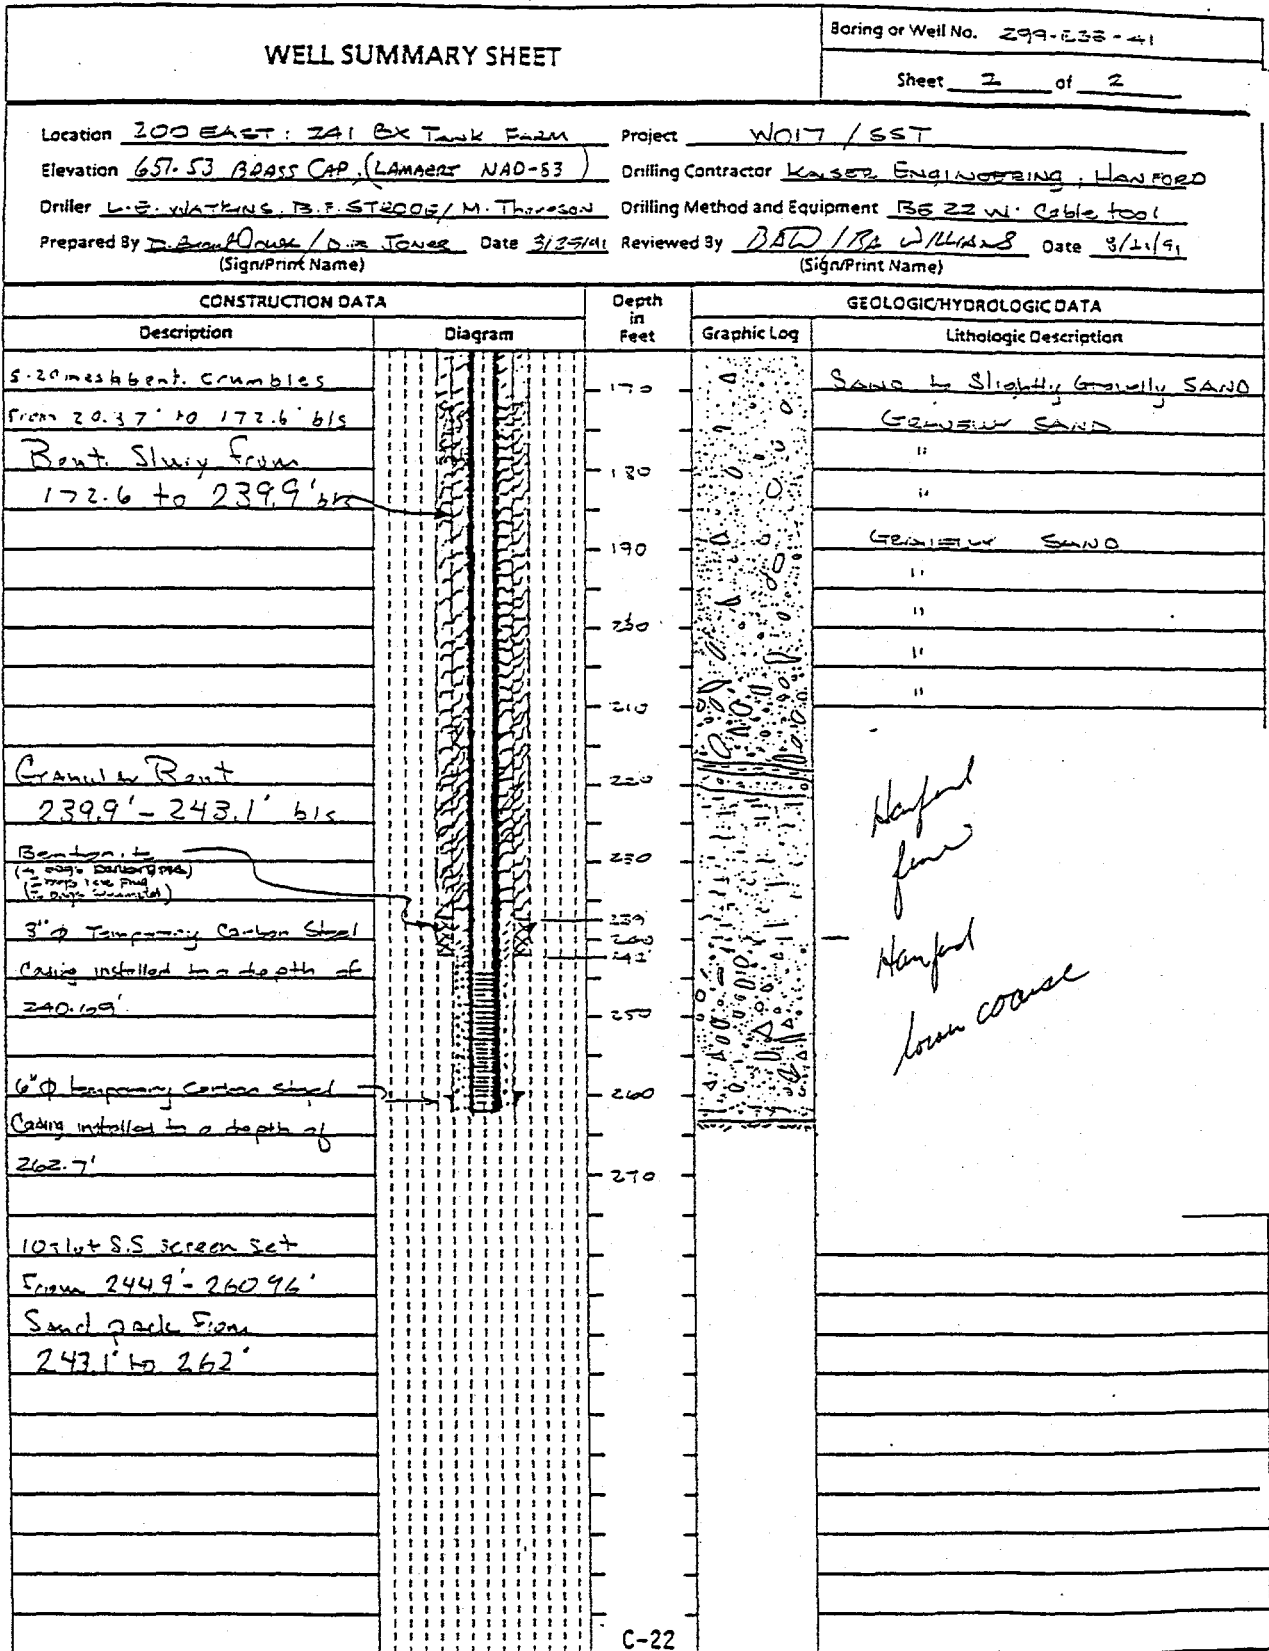 WELL SUMMARY SHEET
Boring or Well No. 299-E33-41
Sheet 2 of 2
Location 200 EAST : 241 BX Tank Farm Project W017 / SST
Elevation 657.53 BRASS CAP (LAMBERT NAD-83) Drilling Contractor KAISER ENGINEERING, HANFORD
Driller L.E. WATKINS, B.F. STROOE/ M. Thompson Drilling Method and Equipment BE 22 W. Cable tool
Prepared By / JONES Date Reviewed By BAW / WILLIAMS Date
(Sign/Print Name) (Sign/Print Name)
CONSTRUCTION DATA
Depth in Feet
GEOLOGIC/HYDROLOGIC DATA
Description Diagram Graphic Log Lithologic Description
5-20 mesh bent. crumbles
From 20.37' to 172.6' bls
Bent. Slury From
172.6 to 239.9' bls
Granular Bent
239.9'- 243.1' bls
Bentonite
3"Ø Temporary Carbon Steel
Casing installed to a depth of
240.109'
6"Ø temporary carbon steel
Casing installed to a depth of
262.7'
10 slot S.S screen set
From 244.9'- 260.96'
Sand pack From
243.1' to 262'
170
180
190
200
210
220
230
239
240
242
250
260
270
SAND to Slightly Gravelly SAND
GRAVELLY SAND
"
"
GRAVELLY SAND
"
"
"
"
Hanford
fine
Hanford
lower coarse
C-22